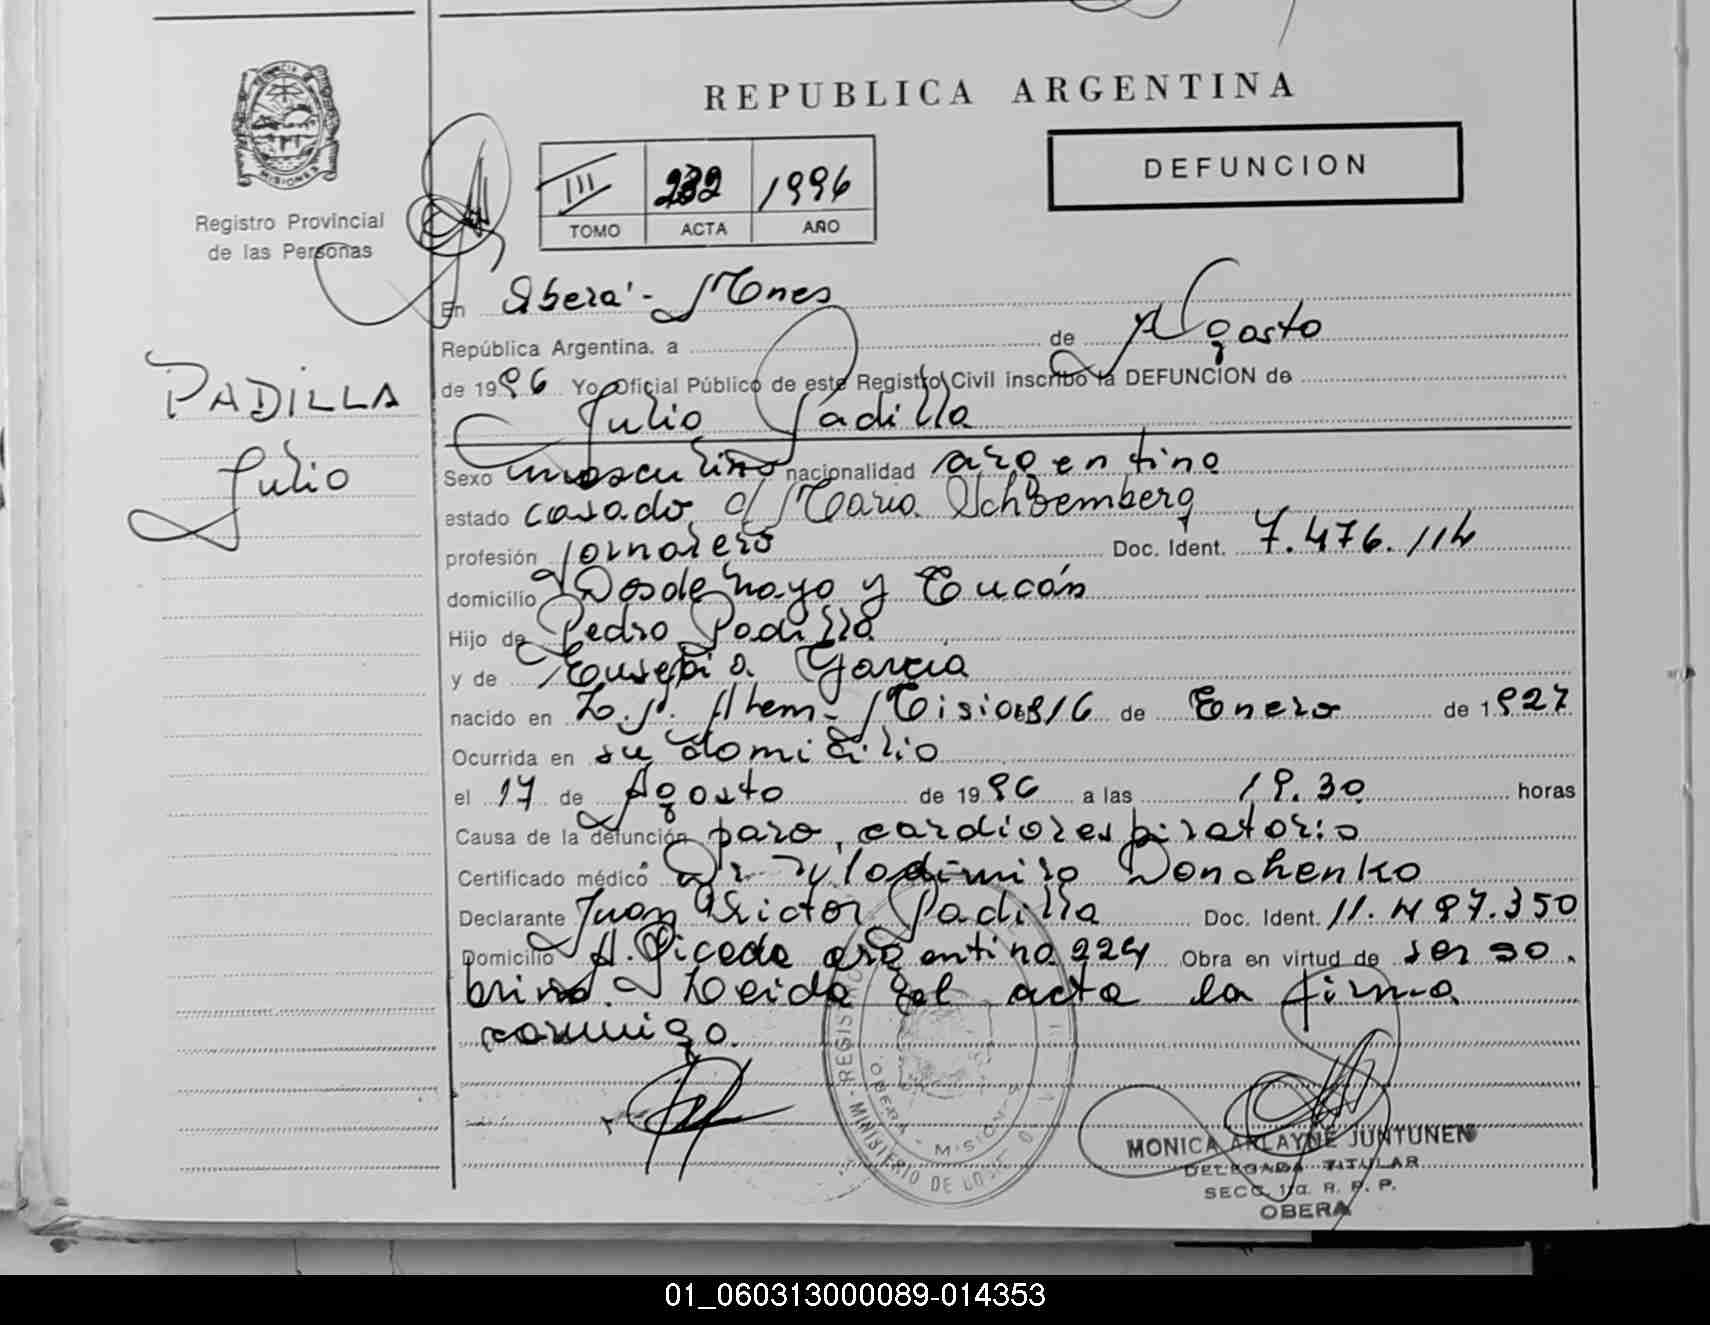 REPUBLICA ARGENTINA
PROVINCIA DE
MISIONES
Registro Provincial
de las Personas
III 232 1996
TOMO ACTA AÑO
DEFUNCION
PADILLA
Julio
En Oberá - Mnes
República Argentina, a de Agosto
de 1996 Yo Oficial Público de este Registro Civil inscribo la DEFUNCION de
Julio Padilla
Sexo masculino nacionalidad argentino
estado casado c/ Maria
profesión jornalero Doc. Ident. 7.476.114
domicilio y Tucán
Hijo de Pedro Padilla
y de Eusebia Garcia
nacido en L.N. Alem - Misiones/6 de Enero de 1927
Ocurrida en su domicilio
el 17 de Agosto de 1996 a las 19.30 horas
Causa de la defunción paro cardiorespiratorio
Certificado médico Dr. Vlodimiro Donchenko
Declarante Juan Victor Padilla Doc. Ident. 11.497.350
Domicilio A. Picada argentina 224 Obra en virtud de ser so
brino. Leida el acta la firma
conmigo.
REGISTRO
MINISTERIO DE
OBERA - MISIONES
MONICA ARLAYNE JUNTUNEN
DELEGADA TITULAR
SECC. 1ra. R. P. P.
OBERA
01_060313000089-014353